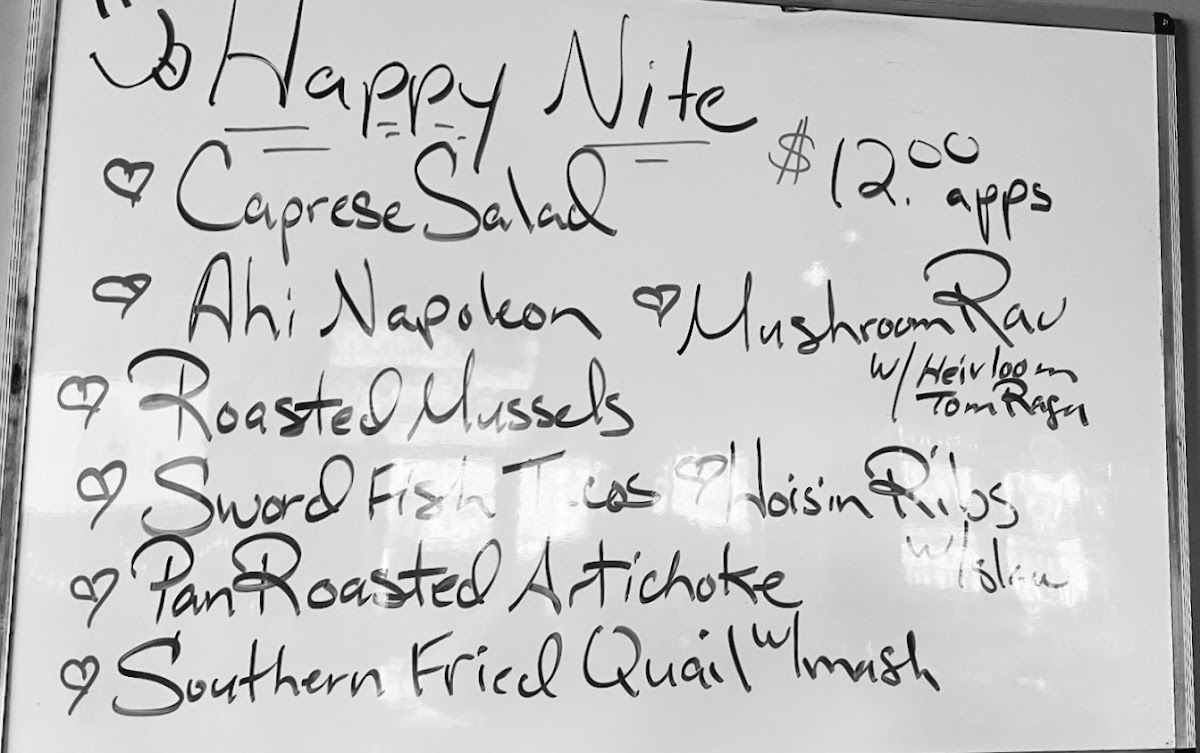 Happy Nite
$12.00 apps
Caprese Salad
Ahi Napoleon
Mushroom Rav
w/ Heirloom
Tom Ragu
Roasted Mussels
Sword Fish Tacos
Hoisin Ribs
w/slaw
Pan Roasted Artichoke
Southern Fried Quail w/mash